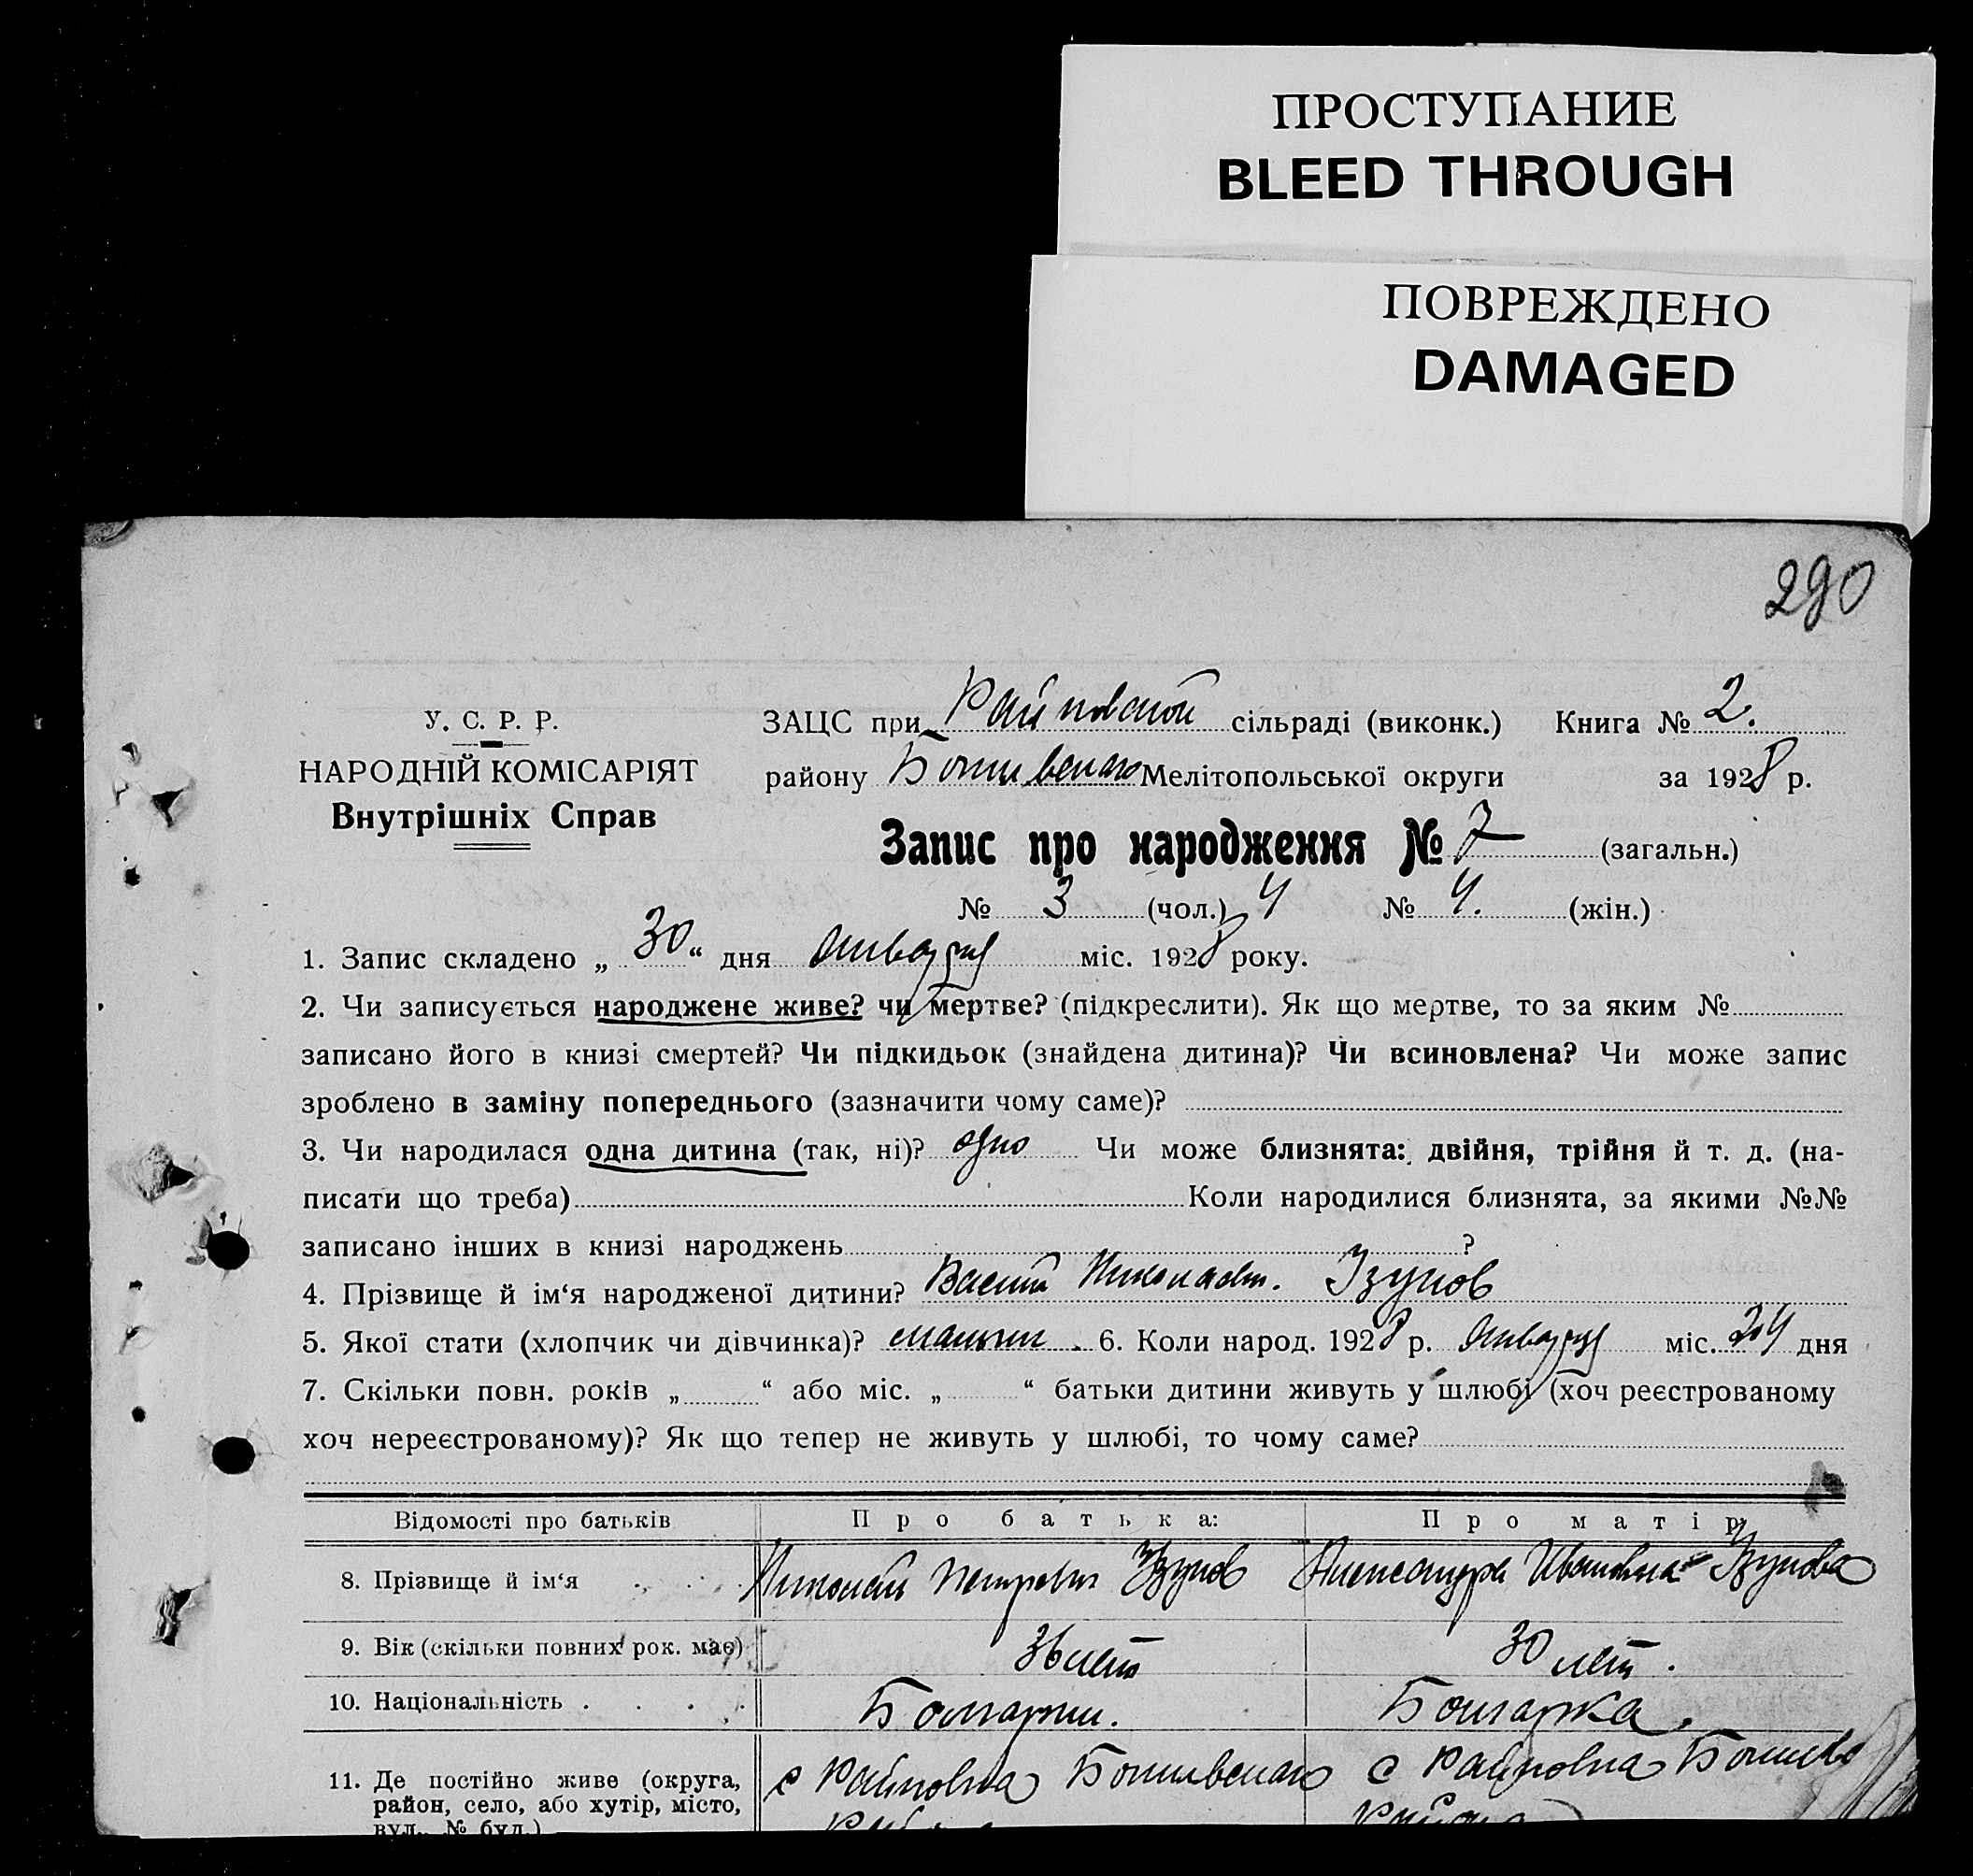 ПРОСТУПАНИЕ
BLEED THROUGH
ПОВРЕЖДЕНО
DAMAGED
290
У. С. Р. Р.
НАРОДНІЙ КОМІСАРІЯТ
Внутрішніх Справ
ЗАЦС при Райновской сільраді (виконк.) Книга № 2.
району Мелітопольської округи за 1928 р.
Запис про народження № 7 (загальн.)
№ 3 (чол.) 4 № 4. (жін.)
1. Запис складено „ 30 “ дня января міс. 1928 року.
2. Чи записується народжене живе? чи мертве? (підкреслити). Як що мертве, то за яким №
записано його в книзі смертей? Чи підкидьок (знайдена дитина)? Чи всиновлена? Чи може запис
зроблено в заміну попереднього (зазначити чому саме)?
3. Чи народилася одна дитина (так, ні)? одно Чи може близнята: двійня, трійня й т. д. (на-
писати що треба) Коли народилися близнята, за якими №№
записано інших в книзі народжень ?
4. Прізвище й ім‘я народженої дитини? Николаев. Узунов
5. Якої стати (хлопчик чи дівчинка)? 6. Коли народ. 1928 р. января міс. 24 дня
7. Скільки повн. років „ “ або міс. „ “ батьки дитини живуть у шлюбі (хоч реєстрованому
хоч нереєстрованому)? Як що тепер не живуть у шлюбі, то чому саме?
Відомості про батьків Про батька: Про матір
8. Прізвище й ім‘я Николай Петрович Узунов Александра Ивановна Узунова
9. Вік (скільки повних рок. має) 36 лет 30 лет.
10. Національність Болгарин. Болгарка.
11. Де постійно живе (округа, с Райновка с Райновка
район, село, або хутір, місто,
вул., № буд.)